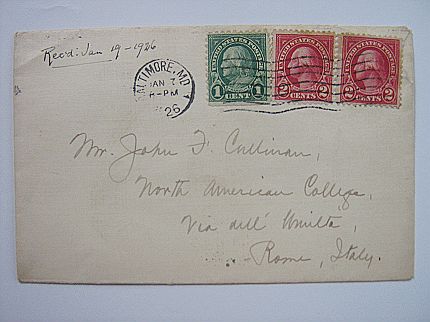 Recd: Jan 19 - 1926
BALTIMORE, MD
JAN 7
8-PM
1926
UNITED STATES POSTAGE
1 CENT 1
UNITED STATES POSTAGE
2 CENTS 2
UNITED STATES POSTAGE
2 CENTS 2
Mr. John F. Cullinan,
North American College,
Via dell' Umiltà,
Rome, Italy.